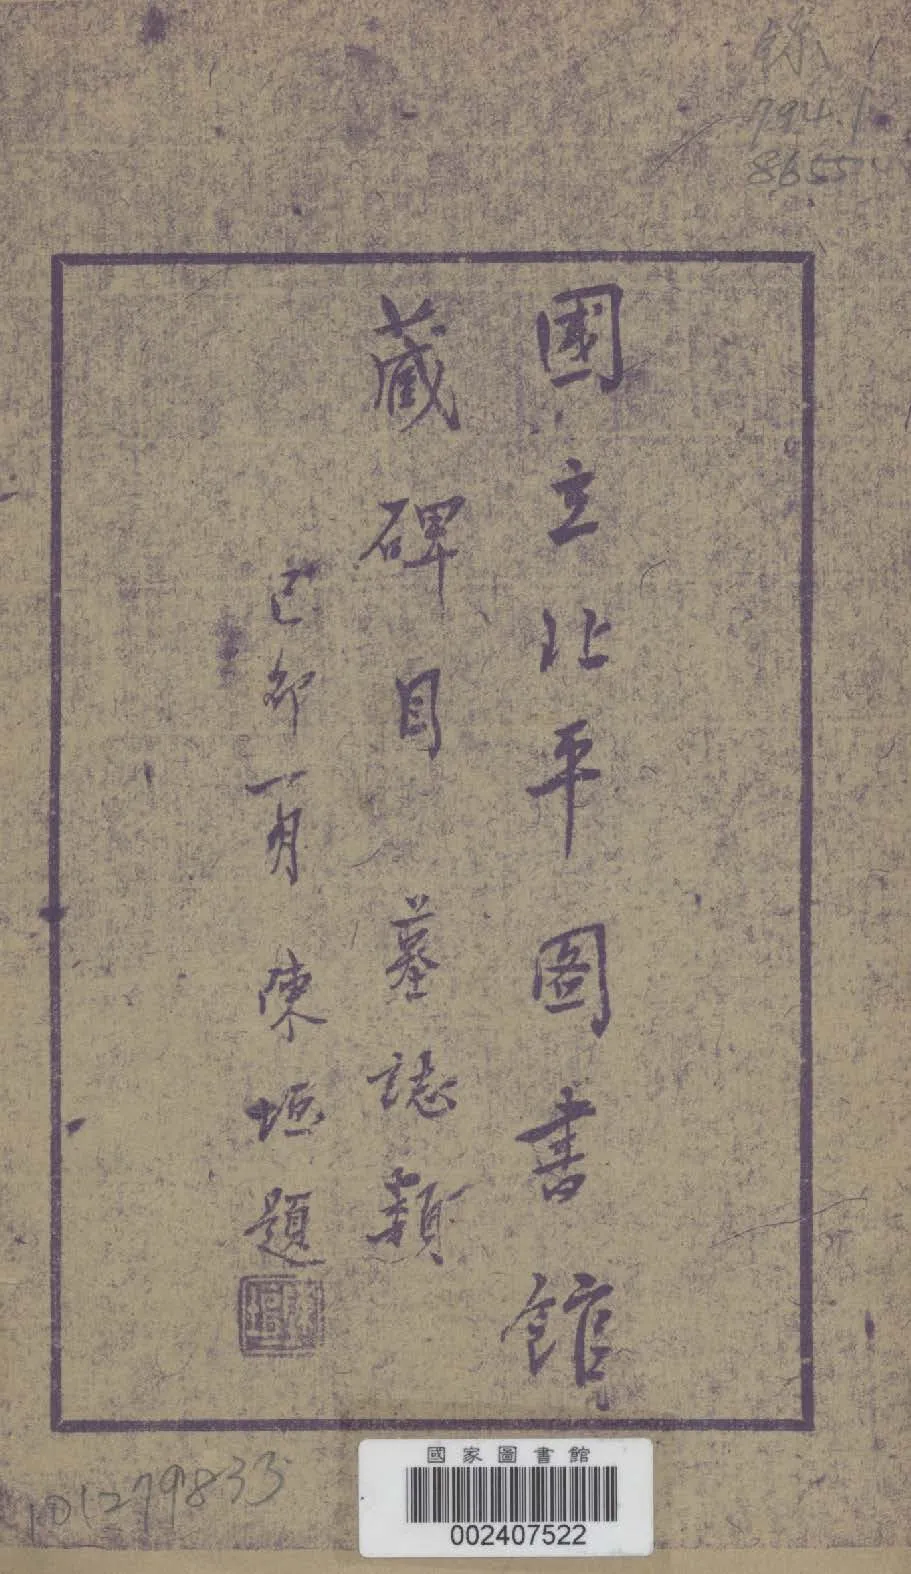 國立北平圖書館
藏碑目墓誌類
己卯一月 陳垣題
794.1
8655
101279833
國家圖書館
002407522